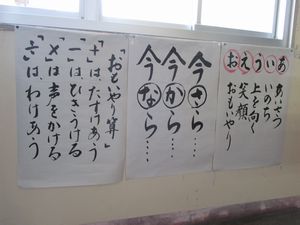 あいうえお
あいさつ
いのち
上を向く
笑顔
おもいやり
今さら‥‥
今から‥‥
今なら‥‥
「おもいやり算」
「＋」は、たすけあう
「－」は、ひきうける
「×」は、声をかける
「÷」は、わけあう